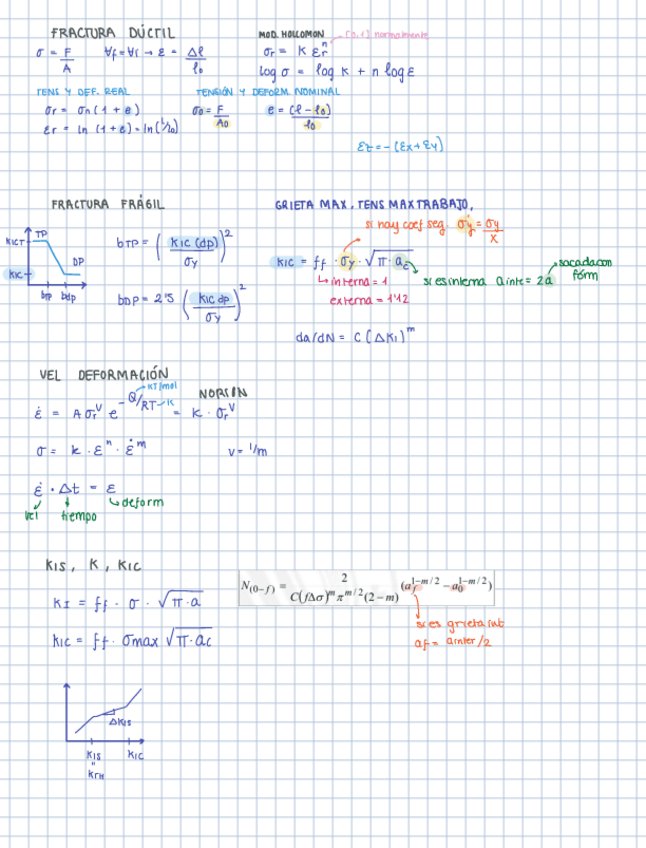 FRACTURA DÚCTIL
σ = F/A   ∀f=∀i → ε = Δl/l₀
MOD. HOLLOMON [0,1] normalmente
σr = K εrⁿ
log σ = log K + n log ε
TENS Y DEF. REAL
σr = σn (1 + e)
εr = ln (1+e) = ln(l/l₀)
TENSIÓN Y DEFORM. NOMINAL
σ₀ = F/A₀   e = (l - l₀)/l₀
εz = -(εx+εy)
FRACTURA FRÁGIL
KICT TP
DP
KIC
btp bdp
bTP = (KIC (dp)/σy)²
bDP = 2'5 (KIC dp/σy)²
GRIETA MAX, TENS MAX TRABAJO,
si hay coef seg. σy = σy/X
KIC = ff · σy · √π·ac
↳ interna = 1
externa = 1'12
si es interna a inte = 2a
sacada con fórm
da/dN = C (ΔKI)ᵐ
VEL DEFORMACIÓN
NORTON
ε̇ = A σrⱽ e^-Q/RT = K · σrⱽ
KJ/mol
K
σ = k · εⁿ · ε̇ᵐ   v = 1/m
ε̇ · Δt = ε
vel tiempo ↳ deform
KIS, K, KIC
KI = ff · σ · √π·a
KIC = ff · σmax √π·ac
N(0−f) = 2/(C(fΔσ)ᵐ π^m/2 (2 − m)) (af^1−m/2 − a0^1−m/2)
si es grieta int
af = a inter/2
ΔKIS
KIS KIC
"
KTH